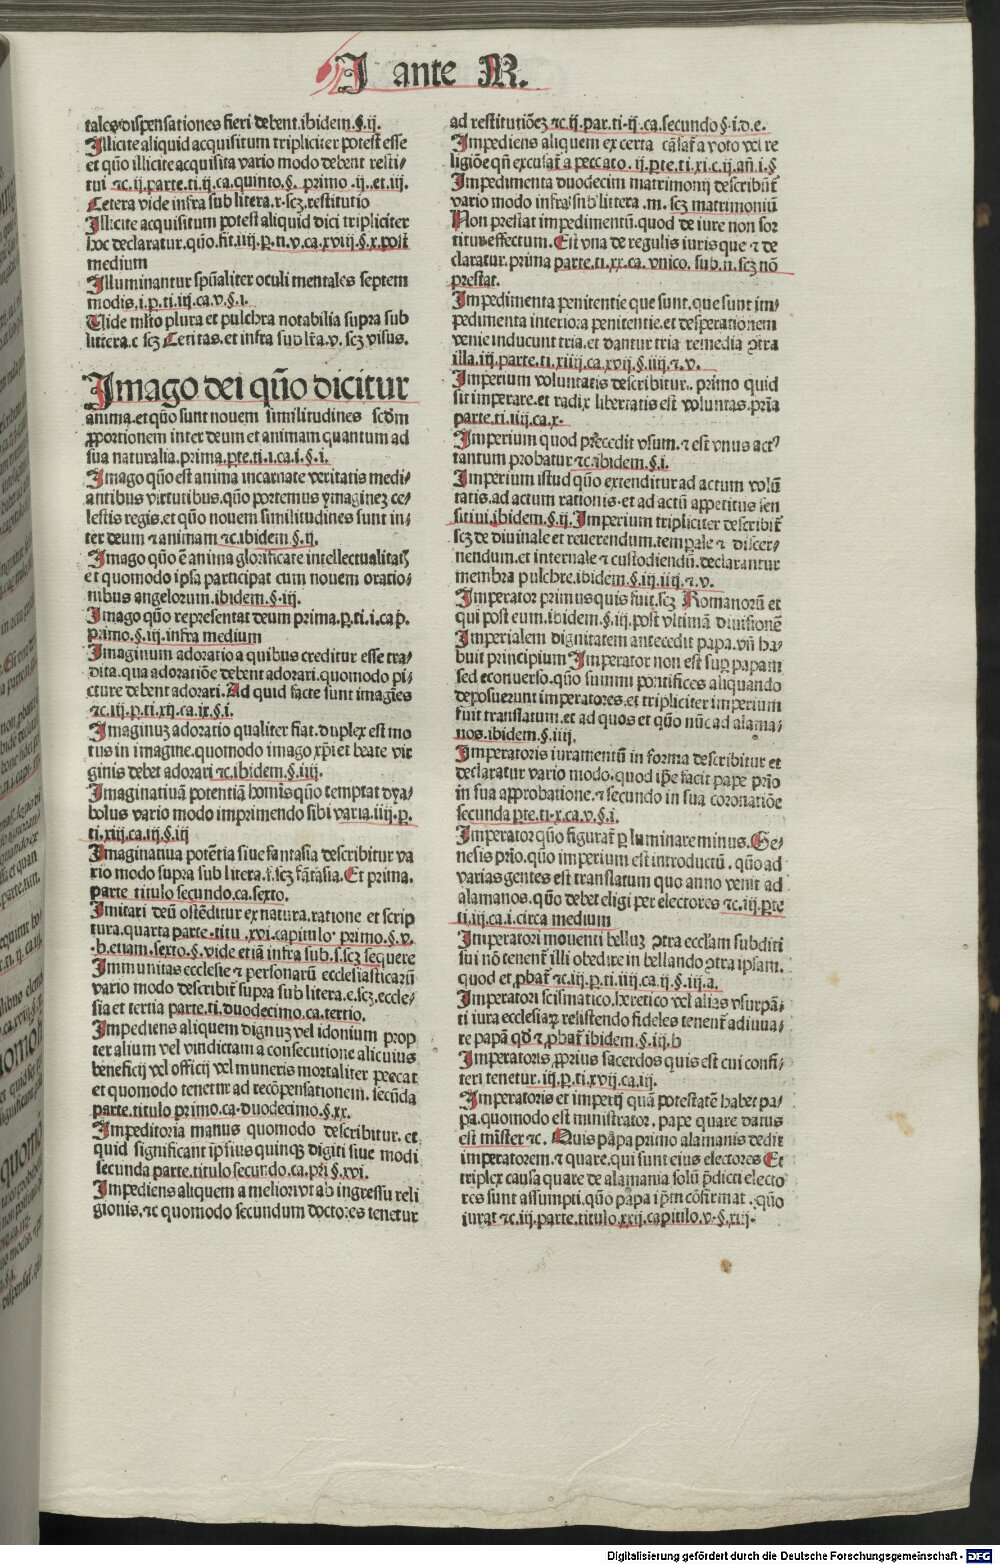 I ante M.
tales dispensationes fieri debent.ibidem.§.ij.
Illicite aliquid acquisitum tripliciter potest esse
et qũo illicite acquisita vario modo debent resti-
tui ⁊c.ij.parte.ti.ij.ca.quinto.§. primo .ij..et.iij.
Cetera vide infra sub litera.r.scz.restitutio
Illicite acquisitum potest aliquid dici tripliciter
hoc declaratur.qũo.fit.iiij.p.ti.v.ca.xviij.§.x.post
medium
Illuminantur spũaliter oculi mentales septem
modis.i.p.ti.iij.ca.v.§.i.
Vide mlto plura et pulchra notabilia supra sub
littera.c scz Cecitas.et infra sub lr̃a.v. scz visus.
Imago dei qũo dicitur
anima.et qũo sunt nouem similitudines scdm
ꝓportionem inter deum et animam quantum ad
sua naturalia.prima.pte.ti.i.ca.i.§.i.
Imago qũo est anima incarnate veritatis medi-
antibus virtutibus.qũo portemus ymaginez ce-
lestis regis.et qũo nouem similitudines sunt in-
ter deum ⁊ animam ⁊c.ibidem.§.ij.
Imago qũo ẽ anima glorificate intellectualitatis
et quomodo ipsa participat cum nouem oratio-
nibus angelorum.ibidem.§.iij.
Imago qũo representat deum prima.p.ti.i.cap.
primo.§.iij.infra medium
Imaginum adoratio a quibus creditur esse tra-
dita.qua adoratiõe debent adorari.quomodo pi-
cture debent adorari. Ad quid facte sunt imagies
⁊c.iij.p.ti.xij.ca.ix.§.i.
Imaginuz adoratio qualiter fiat.duplex est mo
tus in imagine.quomodo imago xp̃i et beate vir
ginis debet adorari ⁊c.ibidem.§.iiij.
Imaginatiuã potentiã homis qũo temptat dya-
bolus vario modo imprimendo sibi varia.iiij.p.
ti.xiij.ca.iij.§.iij
Imaginatiua potẽtia siue fantasia describitur va
rio modo supra sub litera.f.scz fantasia.Et prima.
parte titulo secundo.ca.sexto.
Imitari deũ ostẽditur ex natura.ratione et scrip
tura.quarta parte.titu.xvi.capitulo primo.§.v.
.b.etiam.sexto.§.vide etiã infra sub.s.scz sequere
Immunitas ecclesie ⁊ personarũ ecclesiasticarũ
vario modo describit̃ supra sub litera.e.scz.eccle-
sia et tertia parte.ti.duodecimo.ca.tertio.
Impediens aliquem dignuz vel idonium prop
ter alium vel vindictam a consecutione alicuius
beneficij vel officij vel muneris mortaliter peccat
et quomodo tenetur ad recõpensationem. secũda
parte.titulo primo.ca.duodecimo.§.xx.
Impeditoria manus quomodo describitur. et
quid significant ipsius quinqz digiti siue modi
secunda parte.titulo secundo.ca.pri §.xvi.
Impediens aliquem a meliori vt ab ingressu reli
gionis.⁊c quomodo secundum doctores tenetur
ad restitutiõez ⁊c.ij.par.ti.ij.ca.secundo §.i.d.e.
Impediens aliquem ex certa cã.fat̃ a voto vel re
ligiõe qñ excusat̃ a peccato.ij.pte.ti.xi.c.ij.añ.i.§
Impedimenta duodecim matrimonij describũt̃
vario modo infra sub littera .m. scz matrimoniũ
Non prestat impedimentũ.quod de iure non sor
titur effectum. Est vna de regulis iuris que ⁊ de
claratur.prima parte.ti.xx.ca.vnico.sub.n.scz nõ
prestat.
Impedimenta penitentie que sunt.que sunt im-
pedimenta interiora penitentie.et desperationem
venie inducunt tria.et dantur tria remedia ꝯtra
illa.iij.parte.ti.xiiij.ca.xvij.§.iiij.⁊.v.
Imperium voluntatis describitur. primo quid
sit imperare.et radix libertatis est voluntas.p̃ia
parte.ti.iiij.ca.x.
Imperium quod precedit vsum.⁊ est vnus actꝰ
tantum probatur ⁊c.ibidem.§.i.
Imperium istud qũo extenditur ad actum volũ
tatis.ad actum rationis.et ad actũ appetitus sen
sitiui.ibidem.§.ij.Imperium tripliciter describit̃
scz de diuinale et reuerendum.temp̃ale ⁊ discer-
nendum.et internale ⁊ custodiendũ.declarantur
membra pulchre.ibidem.§.iij.iiij.⁊.v.
Imperator primus quis fuit.scz Romanorũ et
qui post eum.ibidem.§.iij.post vltimã diuisionẽ
Imperialem dignitatem antecedit papa.vñ ha-
buit principium Imperator non est sup papam
sed econuerso.qũo summi pontifices aliquando
deposuerunt imperatores.et tripliciter imperium
fuit translatum.et ad quos et qũo nũc ad alama-
nos.ibidem.§.iiij.
Imperatoris iuramentũ in forma describitur et
declaratur vario modo.quod ip̃e facit pape p̃io
in sua approbatione.⁊ secundo in sua coronatiõe
secunda pte.ti.x.ca.v.§.i.
Imperator qũo figurat̃ p luminare minus. Ge-
nesis p̃io.qũo imperium est introductũ . qũo ad
varias gentes est translatum quo anno venit ad
alamanos.qũo debet eligi per electores ⁊c.iij.pte
ti.iij.ca.i.circa medium
Imperatori mouenti belluz ꝯtra eccl̃iam subditi
sui nõ tenent̃ illi obedire in bellando ꝯtra ipsam.
quod et ꝓbat̃ ⁊c.iij.p.ti.iiij.ca.ij.§.iij.a.
Imperatori scismatico.heretico vel alias vsurpã-
ti iura ecclesiaꝝ resistendo fideles tenent̃ adiuua-
re papã qđ ⁊ ꝓbat̃ ibidem.§.iij.b
Imperatoris ꝓprius sacerdos quis est cui confi-
teri tenetur.iij.p.ti.xvij.ca.iij.
Imperatoris et imperij quã potestatẽ habet pa-
pa.quomodo est ministrator. pape quare datus
est mister ⁊c. Quis papa primo alamanis dedit
imperatorem.⁊ quare.qui sunt eius electores Et
triplex causa quare de alamania solũ p̃dicti electo
res sunt assumpti.qũo papa ip̃m cõfirmat .qũo
iurat ⁊c.iij.parte.titulo.xxij.capitulo.v.§.xiij.
Digitalisierung gefördert durch die Deutsche Forschungsgemeinschaft - DFG